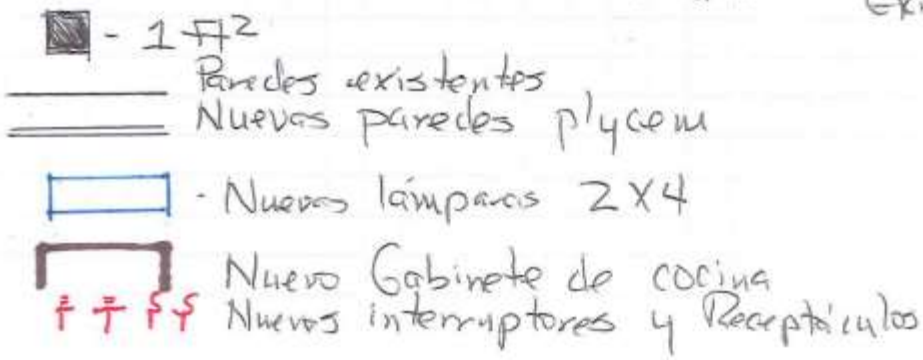 - 1 ft2
Paredes existentes
Nuevas paredes plycem
- Nuevas lámparas 2X4
Nuevo Gabinete de cocina
Nuevos interruptores y Receptáculos